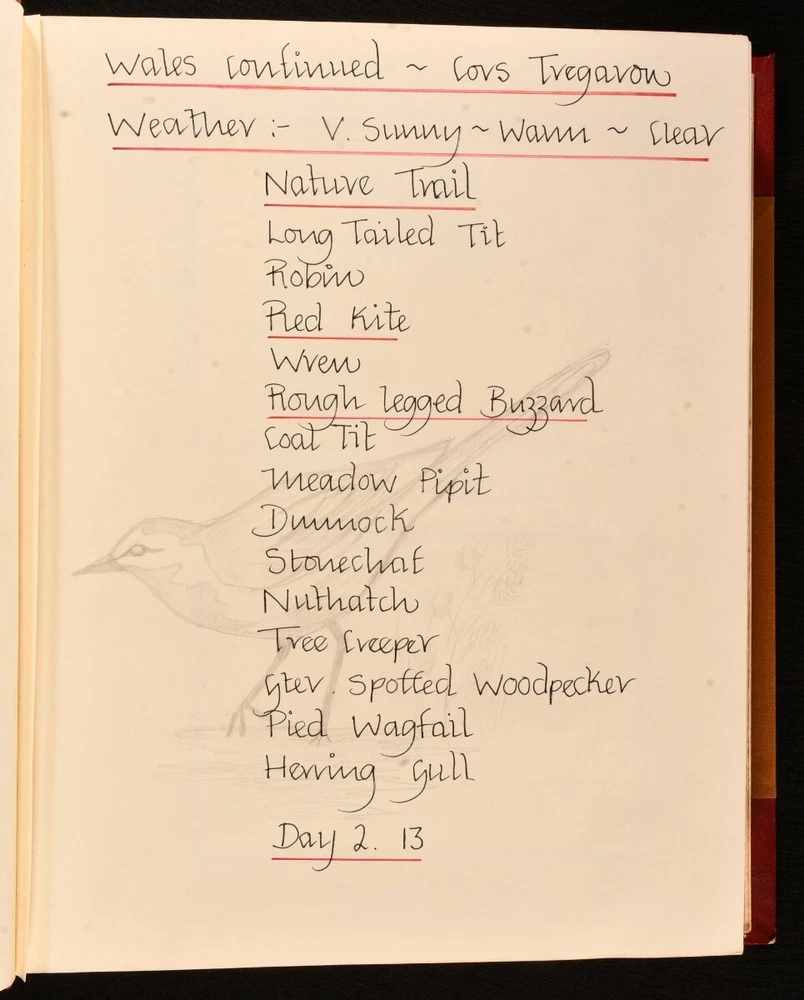 Wales Continued ~ Cors Tregaron
Weather :- V. Sunny ~ Warm ~ Clear
Nature Trail
Long Tailed Tit
Robin
Red Kite
Wren
Rough legged Buzzard
Coal Tit
Meadow Pipit
Dunnock
Stonechat
Nuthatch
Tree Creeper
Gter. Spotted Woodpecker
Pied Wagtail
Herring Gull
Day 2. 13